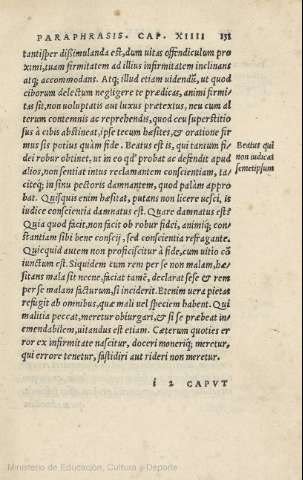 PARAPHRASIS. CAP. XIIII 131
tantisper dißimulanda est, dum uitas offendiculum pro
ximi, tuam firmitatem ad illius infirmitatem inclinans
atq; accommodans. Atq; illud etiam uidendũ, ut quod
ciborum delectum negligere te prædicas, animi firmi-
tas sit, non uoluptatis aut luxus prætextus, neu cum al
terum contemnis ac reprehendis, quod ceu superstitio
sus à cibis abstineat, ipse tecum hæsites, & oratione fir
mus sis potius quàm fide. Beatus est is, qui tantum fi-
dei robur obtinet, ut in eo qđ probat ac defendit apud
alios, non sentiat intus reclamantem conscientiam, ta-
citeq; in sinu pectoris damnantem, quod palàm appro
bat. Quisquis enim hæsitat, putans non licere uesci, is
iudice conscientia damnatus est. Quare damnatus est?
Quia quod facit, non facit ob robur fidei, animiq; con-
stantiam sibi bene conscij, sed conscientia refragante.
Quicquid autem non proficiscitur à fide, cum uitio cõ
iunctum est. Siquidem cum rem per se non malam, hæ-
sitans mala sit necne, faciat tamẽ, declarat sese & rem
per se malam facturum, si inciderit. Etenim uera pietas
refugit ab omnibus, quæ mali uel speciem habent. Qui
malitia peccat, meretur obiurgari, & si se præbeat in-
emendabilem, uitandus est etiam. Cæterum quoties er
ror ex infirmitate nascitur, doceri moneriq; meretur,
qui errore tenetur, fastidiri aut rideri non meretur.
Beatus qui
non iudicat
semetipsum
i 2 CAPVT
Ministerio de Educación, Cultura y Deporte